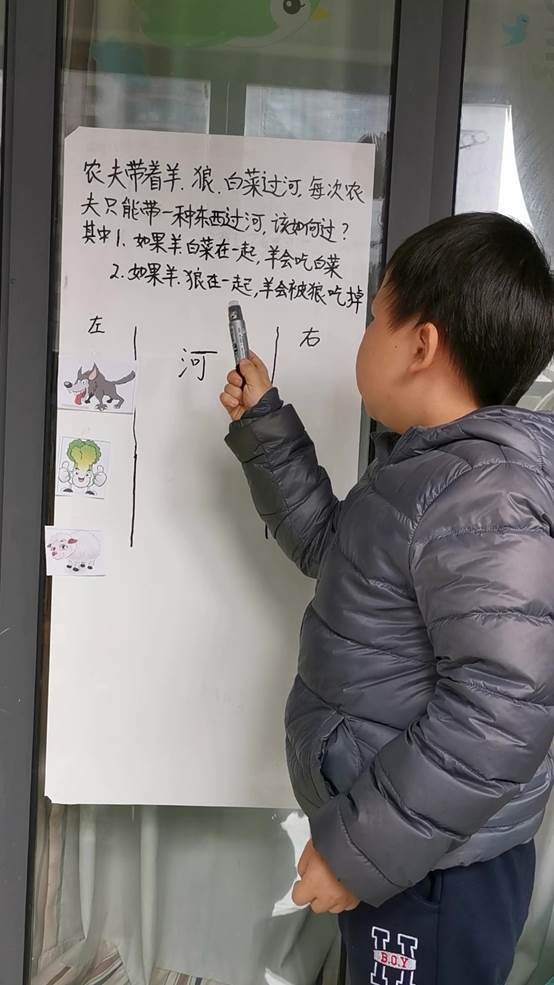 农夫带着羊、狼、白菜过河,每次农
夫只能带一种东西过河,该如何过?
其中1.如果羊.白菜在一起,羊会吃白菜
2.如果羊.狼在一起,羊会被狼吃掉
左
河
右
H
B.O.Y